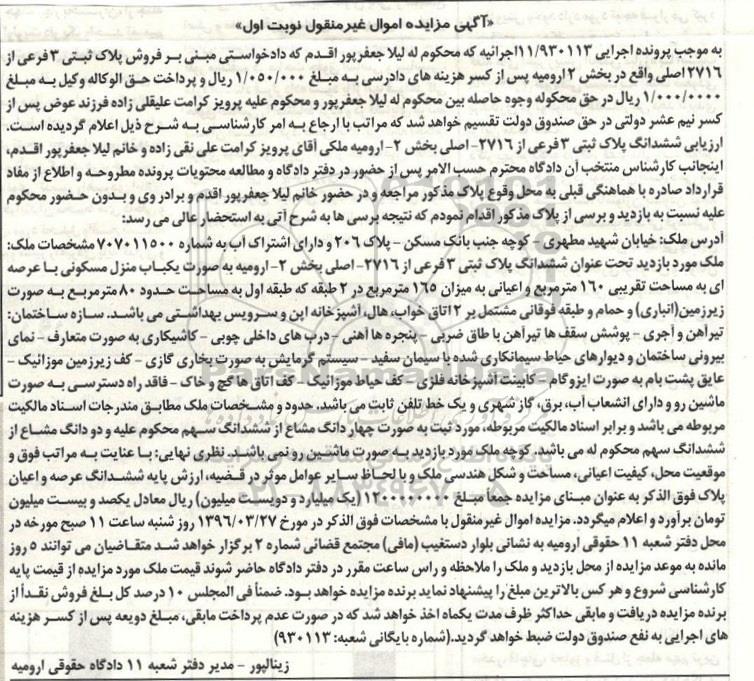 «آگهی مزایده اموال غیرمنقول نوبت اول»
به موجب پرونده اجرایی ۱۱/۹۳۰۱۱۳اجرائیه که محکوم له لیلا جعفرپور اقدم که دادخواستی مبنی بر فروش پلاک ثبتی ۳فرعی از
۲۷۱۶ اصلی واقع در بخش ۲ ارومیه پس از کسر هزینه های دادرسی به مبلغ ۱/۰۵۰/۰۰۰ ریال و پرداخت حق الوکاله وکیل به مبلغ
۱/۰۰۰/۰۰۰۰ ریال در حق محکوله وجوه حاصله بین محکوم له لیلا جعفرپور و محکوم علیه پرویز کرامت علیقلی زاده فرزند عوض پس از
کسر نیم عشر دولتی در حق صندوق دولت تقسیم خواهد شد که مراتب با ارجاع به امر کارشناسی به شرح ذیل اعلام گردیده است.
ارزیابی ششدانگ پلاک ثبتی ۳ فرعی از ۲۷۱۶- اصلی بخش ۲- ارومیه ملکی آقای پرویز کرامت علی نقی زاده و خانم لیلا جعفرپور اقدم،
اینجانب کارشناس منتخب آن دادگاه محترم حسب الامر پس از حضور در دفتر دادگاه و مطالعه محتویات پرونده مطروحه و اطلاع از مفاد
قرارداد صادره با هماهنگی قبلی به محل وقوع پلاک مذکور مراجعه و در حضور خانم لیلا جعفرپور اقدم و برادر وی و بدون حضور محکوم
علیه نسبت به بازدید و برسی از پلاک مذکور اقدام نمودم که نتیجه برسی ها به شرح آتی به استحضار عالی می رسد:
آدرس ملک: خیابان شهید مطهری - کوچه جنب بانک مسکن - پلاک ۲۰۶ و دارای اشتراک آب به شماره ۷۰۷۰۱۱۵۰۰ مشخصات ملک:
ملک مورد بازدید تحت عنوان ششدانگ پلاک ثبتی ۳ فرعی از ۲۷۱۶- اصلی بخش ۲- ارومیه به صورت یکباب منزل مسکونی با عرصه
ای به مساحت تقریبی ۱۶۰ مترمربع و اعیانی به میزان ۱۶۵ مترمربع در ۲ طبقه که طبقه اول به مساحت حدود ۸۰ مترمربع به صورت
زیرزمین(انباری) و حمام و طبقه فوقانی مشتمل بر ۲ اتاق خواب، هال، آشپزخانه اپن و سرویس بهداشتی می باشد. سازه ساختمان:
تیرآهن و آجری - پوشش سقف ها تیرآهن با طاق ضربی - پنجره ها آهنی - درب های داخلی چوبی - کاشیکاری به صورت متعارف - نمای
بیرونی ساختمان و دیوارهای حیاط سیمانکاری شده با سیمان سفید - سیستم گرمایش به صورت بخاری گازی - کف زیرزمین موزائیک -
عایق پشت بام به صورت ایزوگام - کابینت آشپزخانه فلزی - کف حیاط موزائیک - کف اتاق ها گچ و خاک - فاقد راه دسترسی به صورت
ماشین رو و دارای انشعاب آب، برق، گاز شهری و یک خط تلفن ثابت می باشد. حدود و مشخصات ملک مطابق مندرجات اسناد مالکیت
مربوطه می باشد و برابر اسناد مالکیت مربوطه، مورد ثبت به صورت چهار دانگ مشاع از ششدانگ سهم محکوم علیه و دو دانگ مشاع از
ششدانگ سهم محکوم له می باشد. کوچه ملک مورد بازدید به صورت ماشین رو نمی باشد. نظری نهایی: با عنایت به مراتب فوق و
موقعیت محل، کیفیت اعیانی، مساحت و شکل هندسی ملک و با لحاظ سایر عوامل موثر در قضیه، ارزش پایه ششدانگ عرصه و اعیان
پلاک فوق الذکر به عنوان مبنای مزایده جمعا مبلغ ۱۲۰۰۰۰۰۰۰۰ (یک میلیارد و دویست میلیون) ریال معادل یکصد و بیست میلیون
تومان برآورد و اعلام میگردد. مزایده اموال غیرمنقول با مشخصات فوق الذکر در مورخ ۱۳۹۶/۰۳/۲۷ روز شنبه ساعت ۱۱ صبح مورخه در
محل دفتر شعبه ۱۱ حقوقی ارومیه به نشانی بلوار دستغیب (مافی) مجتمع قضائی شماره ۲ برگزار خواهد شد متقاضیان می توانند ۵ روز
مانده به موعد مزایده از محل بازدید و ملک را ملاحظه و راس ساعت مقرر در دفتر دادگاه حاضر شوند قیمت ملک مورد مزایده از قیمت پایه
کارشناسی شروع و هر کس بالاترین مبلغ را پیشنهاد نماید برنده مزایده خواهد بود. ضمنأ فی المجلس ۱۰ درصد کل بلغ فروش نقدأ از
برنده مزایده دریافت و مابقی حداکثر ظرف مدت یکماه اخذ خواهد شد که در صورت عدم پرداخت مابقی، مبلغ دویعه پس از کسر هزینه
های اجرایی به نفع صندوق دولت ضبط خواهد گردید.(شماره بایگانی شعبه: ۹۳۰۱۱۳)
زینالپور - مدیر دفتر شعبه ۱۱ دادگاه حقوقی ارومیه
ParsNamadData